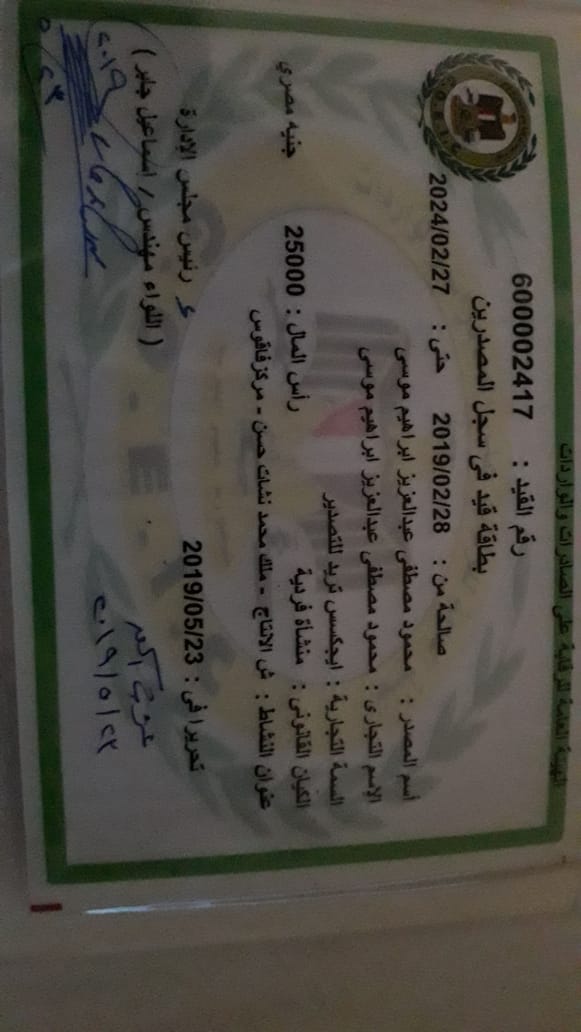 الهيئة العامة للرقابة على الصادرات والواردات
رقم القيد : 600002417
بطاقة قيد فى سجل المصدرين
صالحة من : 2019/02/28 حتى : 2024/02/27
أسم المصدر : محمود مصطفى عبدالعزيز ابراهيم موسى
الإسم التجارى : محمود مصطفى عبدالعزيز ابراهيم موسى
السمة التجارية : ايجكسس تريد للتصدير
الكيان القانونى : منشاة فردية رأس المال : 25000 جنيه مصري
عنوان النشاط : ش الانتاج - ملك محمد نشات حسن - مركز فاقوس
تحريرا فى : 2019/05/23
رئيس مجلس الإدارة
( اللواء مهندس / اسماعيل جابر )
٢٠١٩/٥/٢٣